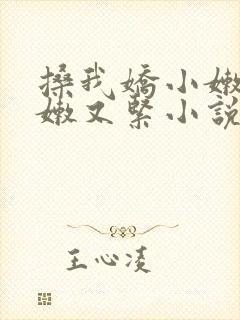 搡我嬌小嫩
嫩又緊小說
王心凌